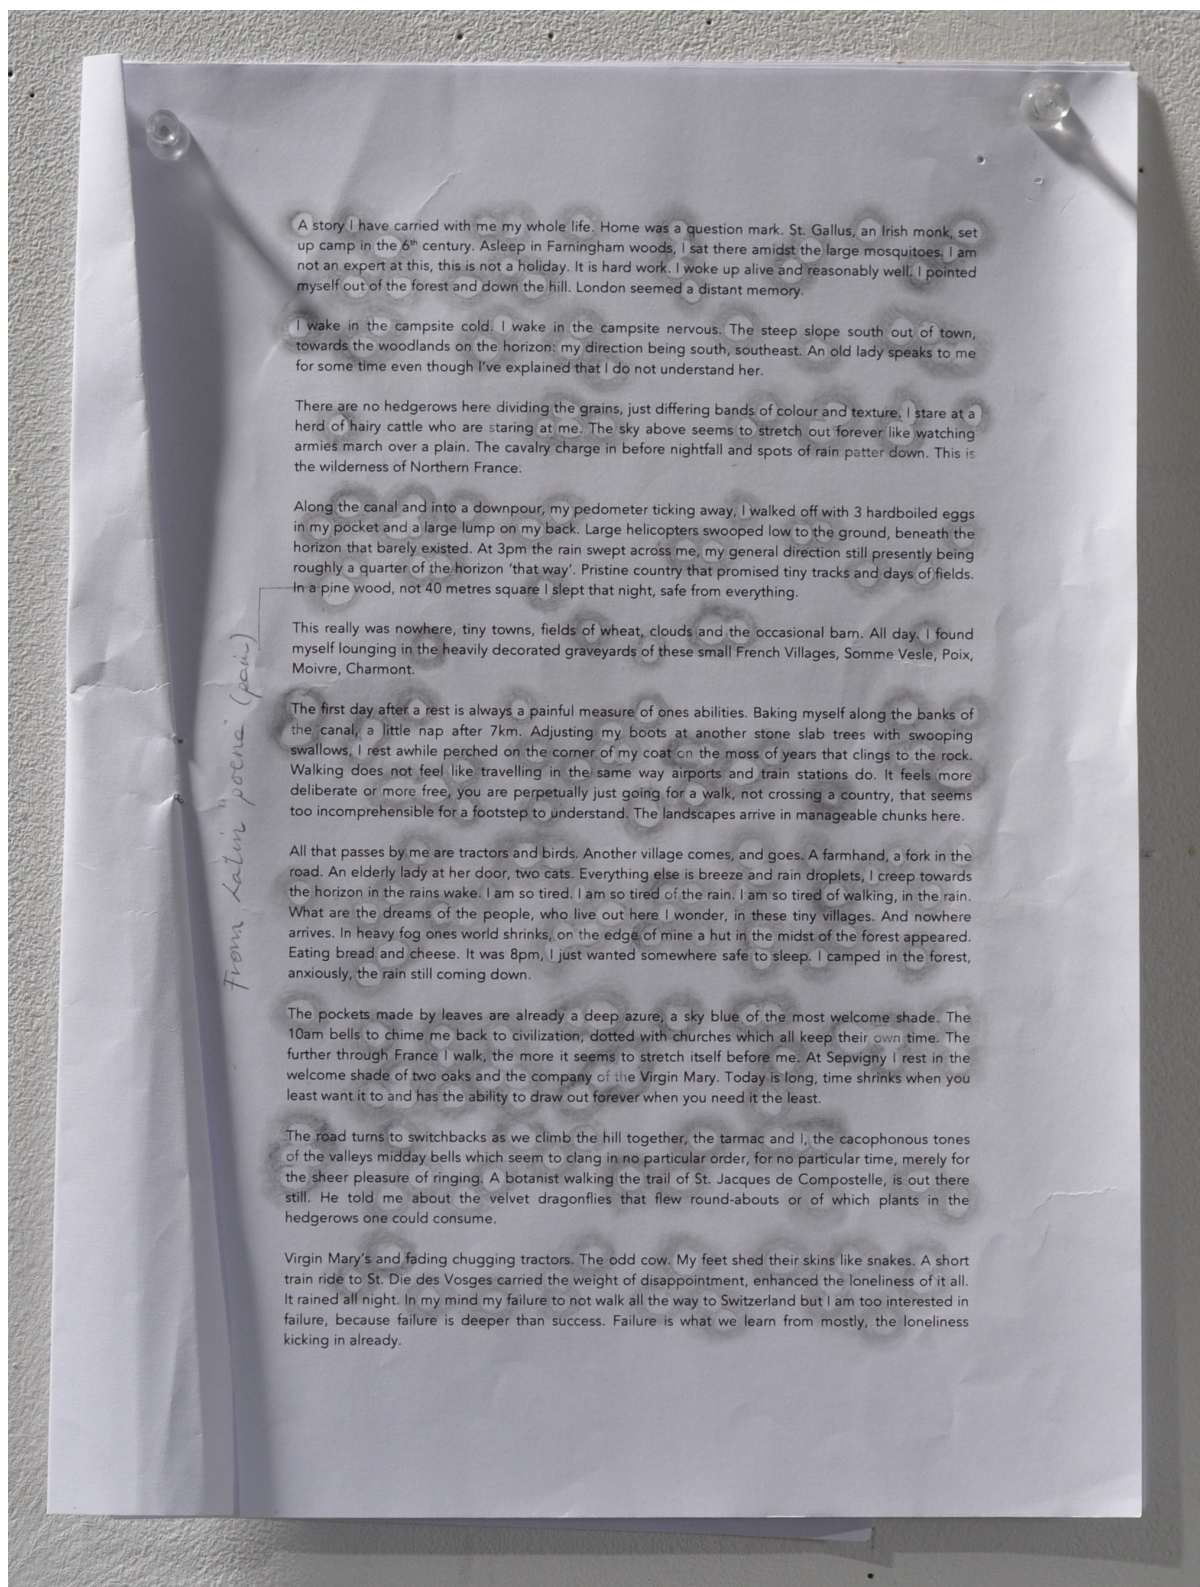 A story I have carried with me my whole life. Home was a question mark. St. Gallus, an Irish monk, set
up camp in the 6th century. Asleep in Farningham woods, I sat there amidst the large mosquitoes. I am
not an expert at this, this is not a holiday. It is hard work. I woke up alive and reasonably well, I pointed
myself out of the forest and down the hill. London seemed a distant memory.
I wake in the campsite cold. I wake in the campsite nervous. The steep slope south out of town,
towards the woodlands on the horizon: my direction being south, southeast. An old lady speaks to me
for some time even though I've explained that I do not understand her.
There are no hedgerows here dividing the grains, just differing bands of colour and texture. I stare at a
herd of hairy cattle who are staring at me. The sky above seems to stretch out forever like watching
armies march over a plain. The cavalry charge in before nightfall and spots of rain patter down. This is
the wilderness of Northern France.
Along the canal and into a downpour, my pedometer ticking away, I walked off with 3 hardboiled eggs
in my pocket and a large lump on my back. Large helicopters swooped low to the ground, beneath the
horizon that barely existed. At 3pm the rain swept across me, my general direction still presently being
roughly a quarter of the horizon 'that way'. Pristine country that promised tiny tracks and days of fields.
In a pine wood, not 40 metres square I slept that night, safe from everything.
This really was nowhere, tiny towns, fields of wheat, clouds and the occasional barn. All day. I found
myself lounging in the heavily decorated graveyards of these small French Villages, Somme Vesle, Poix,
Moivre, Charmont.
From Latin "poena" (pain)
The first day after a rest is always a painful measure of ones abilities. Baking myself along the banks of
the canal, a little nap after 7km. Adjusting my boots at another stone slab trees with swooping
swallows, I rest awhile perched on the corner of my coat on the moss of years that clings to the rock.
Walking does not feel like travelling in the same way airports and train stations do. It feels more
deliberate or more free, you are perpetually just going for a walk, not crossing a country, that seems
too incomprehensible for a footstep to understand. The landscapes arrive in manageable chunks here.
All that passes by me are tractors and birds. Another village comes, and goes. A farmhand, a fork in the
road. An elderly lady at her door, two cats. Everything else is breeze and rain droplets, I creep towards
the horizon in the rains wake. I am so tired. I am so tired of the rain. I am so tired of walking, in the rain.
What are the dreams of the people, who live out here I wonder, in these tiny villages. And nowhere
arrives. In heavy fog ones world shrinks, on the edge of mine a hut in the midst of the forest appeared.
Eating bread and cheese. It was 8pm, I just wanted somewhere safe to sleep. I camped in the forest,
anxiously, the rain still coming down.
The pockets made by leaves are already a deep azure, a sky blue of the most welcome shade. The
10am bells to chime me back to civilization, dotted with churches which all keep their own time. The
further through France I walk, the more it seems to stretch itself before me. At Sepvigny I rest in the
welcome shade of two oaks and the company of the Virgin Mary. Today is long, time shrinks when you
least want it to and has the ability to draw out forever when you need it the least.
The road turns to switchbacks as we climb the hill together, the tarmac and I, the cacophonous tones
of the valleys midday bells which seem to clang in no particular order, for no particular time, merely for
the sheer pleasure of ringing. A botanist walking the trail of St. Jacques de Compostelle, is out there
still. He told me about the velvet dragonflies that flew round-abouts or of which plants in the
hedgerows one could consume.
Virgin Mary's and fading chugging tractors. The odd cow. My feet shed their skins like snakes. A short
train ride to St. Die des Vosges carried the weight of disappointment, enhanced the loneliness of it all.
It rained all night. In my mind my failure to not walk all the way to Switzerland but I am too interested in
failure, because failure is deeper than success. Failure is what we learn from mostly, the loneliness
kicking in already.